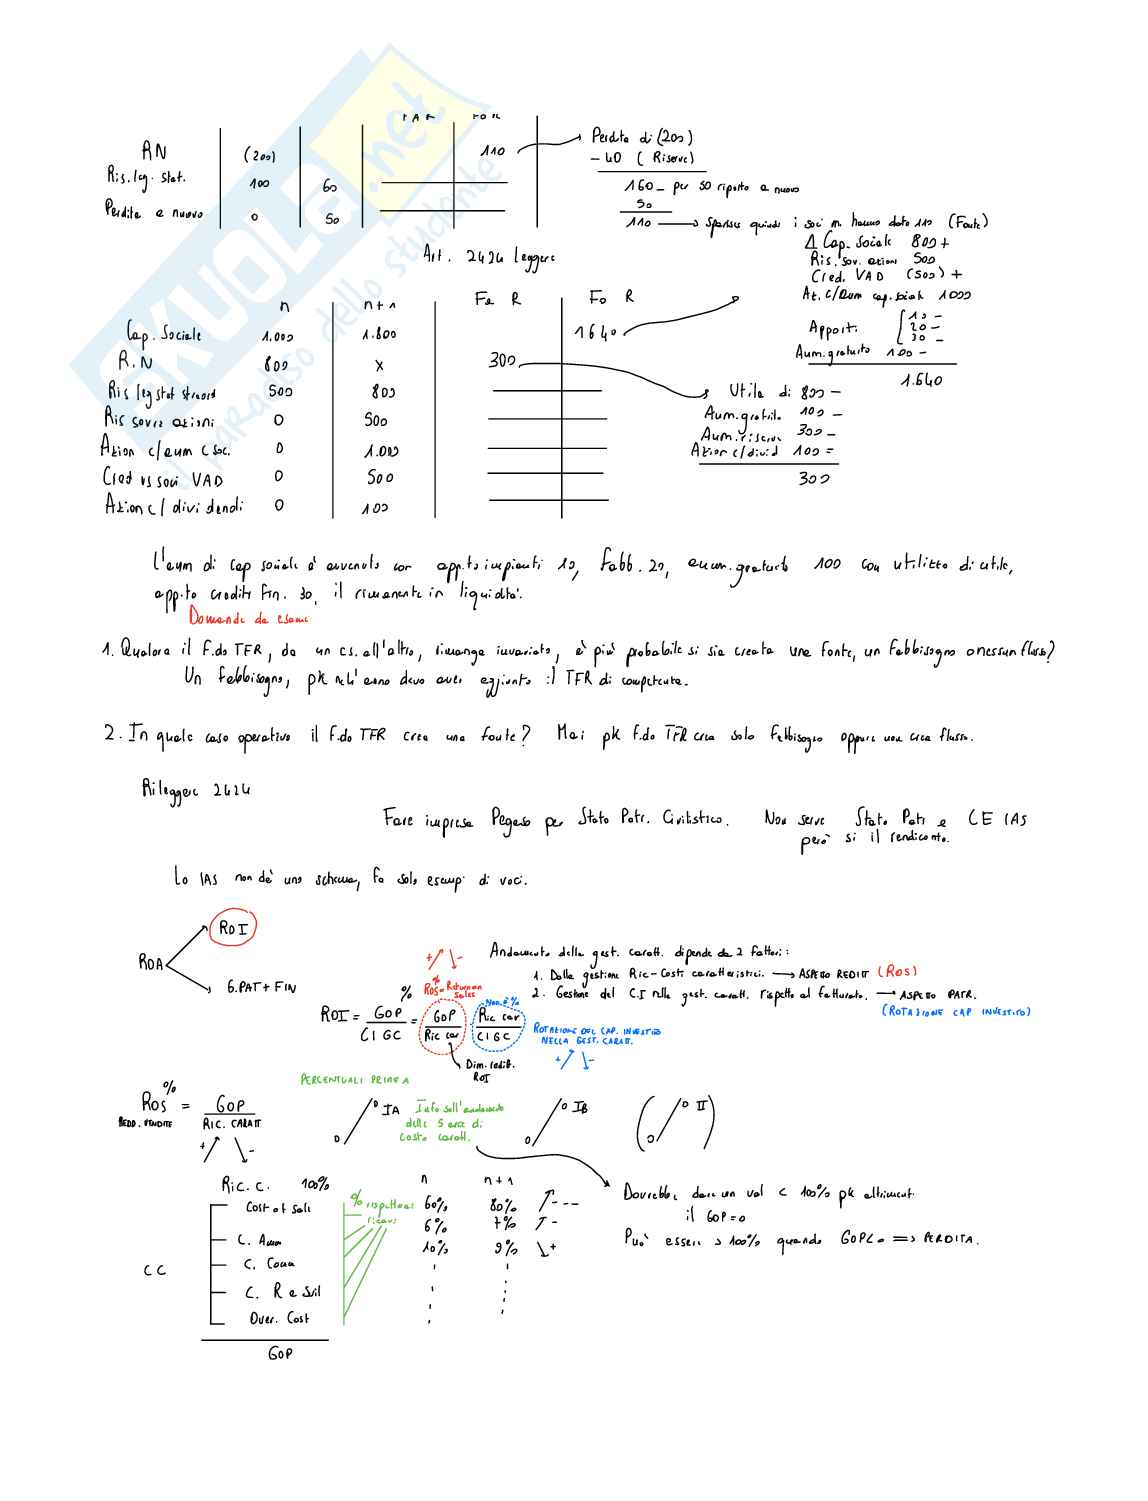 RN (200) 110
Ris. leg. stat. 100 60
Perdite a nuovo 0 50
Perdita di (200)
- 40 (Riserve)
160 - per 50 riporto a nuovo
50
110 → quindi i soci m. hanno dato 110 (Fonte)
Art. 2424 leggere
Δ Cap. Sociale 800 +
Ris. sov. azioni 500
Cred. VAD (500) +
Az. c/aum cap. sociale 1000
Apporti 10 -
20 -
30 -
Aum. gratuito 100 -
1.640
n n+1 Fa R Fo R
Cap. Sociale 1.000 1.800 1640
R.N 800 x 300
Ris leg stat straord 500 800
Ris sovr azioni 0 500
Azion c/aum c soc. 0 1.000
Cred vs soci VAD 0 500
Azion c/ dividendi 0 100
Utile di 800 -
Aum. gratuito 100 -
Aum. riserve 300 -
Azion c/divid 100 =
300
L'aum di cap sociale è avvenuto con app.to impianti 10, fabb. 20, aum. gratuito 100 con utilizzo di utile,
app.to crediti fin. 30, il rimanente in liquidità.
Domande da esame
1. Qualora il F.do TFR, da un es. all'altro, rimanga invariato, è più probabile si sia creata una fonte, un fabbisogno o nessun flusso?
Un fabbisogno, pk nell'anno devo aver aggiunto il TFR di competenza.
2. In quale caso operativo il F.do TFR crea una fonte? Mai pk F.do TFR crea solo fabbisogno oppure non crea flusso.
Rileggere 2424
Fare impresa Pegaso per Stato Patr. Civilistico. Non serve Stato Patr e CE IAS
però si il rendiconto.
Lo IAS non dà uno schema, fa solo esempi di voci.
ROA
ROI
G.PAT + FIN
Andamento della gest. caratt. dipende da 2 fattori:
1. Dalla gestione Ric-Costi caratteristici. → ASPETTO REDDIT (ROS)
2. Gestione del C.I nella gest. caratt. rispetto al fatturato. → ASPETTO PATR.
(ROTAZIONE CAP INVESTITO)
+ -
%
ROS = Return on
Sales
Non è %
%
ROI = GOP / CIGC = GOP / Ric car · Ric car / CIGC
ROTAZIONE DEL CAP. INVESTITO
NELLA GEST. CARATT.
+ -
Dim. reddit.
ROI
PERCENTUALI PRIMA
%
ROS = GOP / RIC. CARATT
REDD. VENDITE
+ -
IA
Info sull'andamento
delle 5 aree di
costo caratt.
IB
( II )
Ric. c. 100%
n n+1
% rispetto ai
ricavi
Cost of sale 60% 80% ---
6% 7% -
C. Amm 10% 9% +
C. Comm
CC
C. R e Svil
Over. Cost
GOP
Dovrebbe dare un val < 100% pk altrimenti
il GOP=0
Può essere > 100% quando GOP<0 => PERDITA.
SKUOLA.net
il paradiso dello studente